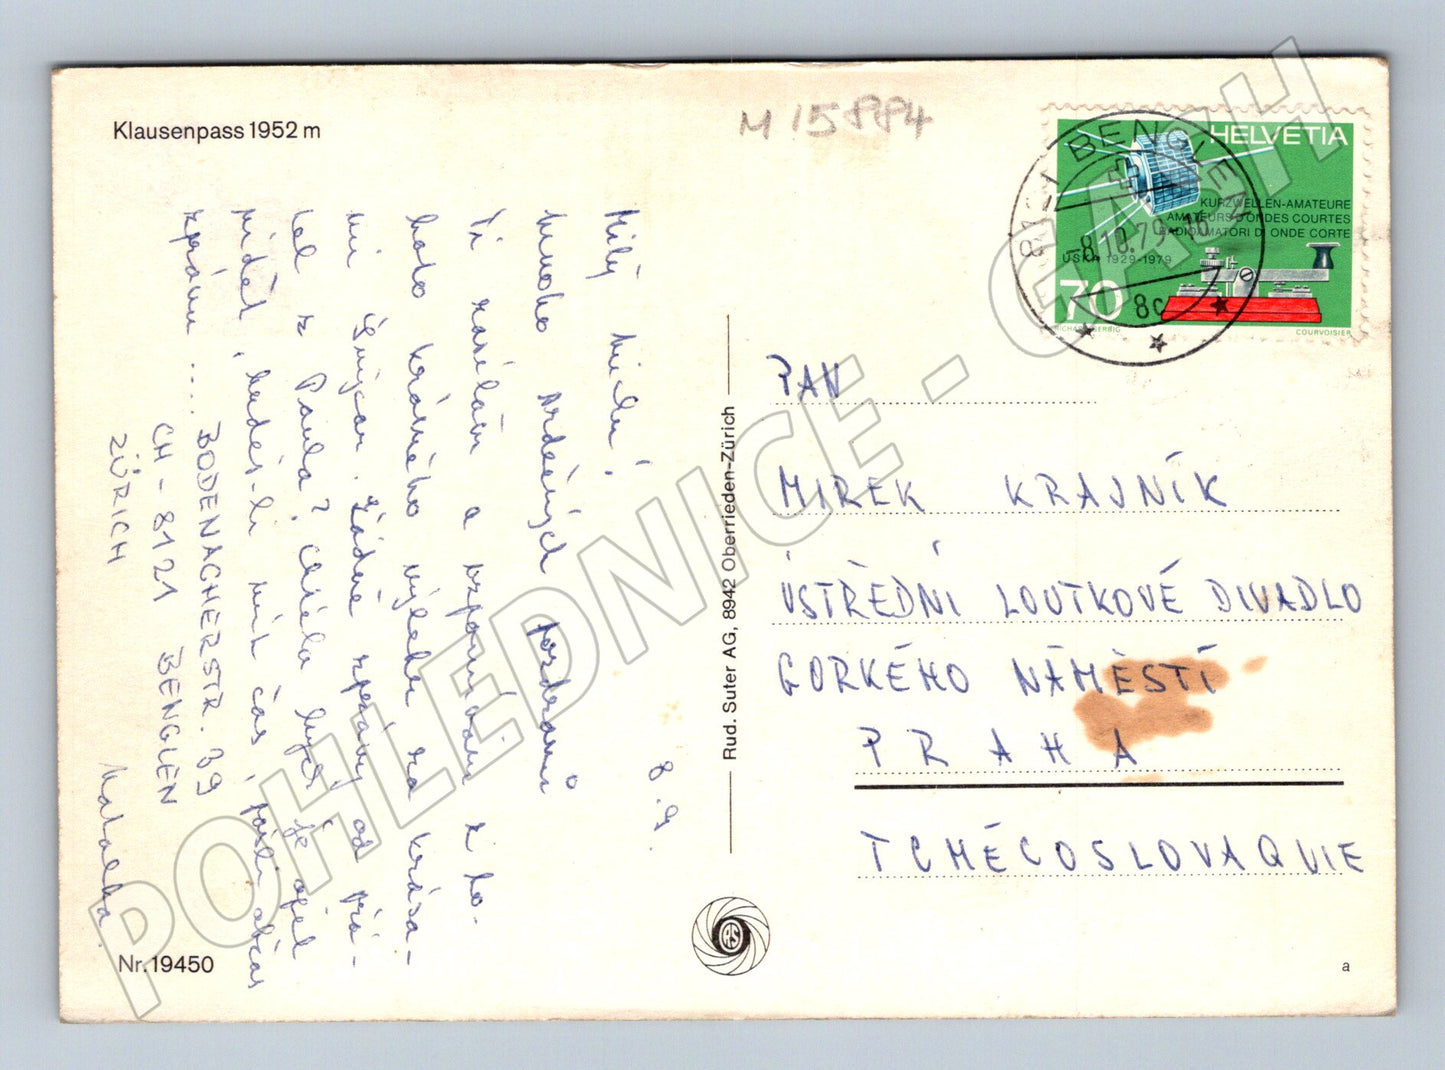 Klausenpass 1952 m
M 15884
HELVETIA
KURZWELLEN-AMATEURE
AMATEURS D'ONDES COURTES
RADIOAMATORI DI ONDE CORTE
USKA 1929-1979
70
COURVOISIER
8121 BENGLEN
-8.10.79-10
8c
8.9.
Milý
mnoho srdečných pozdravů
Ti zasílám a vzpomínám z to-
hoto krásného výletu za krása-
mi Švýcar. Žádné zprávy od přá-
tel z Paula? Chtěla bych je opět
vidět, budeš-li mít čas, pošli občas
zprávu ....
BODENACHERSTR. 89
CH - 8121 BENGLEN
ZÜRICH
Rud. Suter AG, 8942 Oberrieden-Zürich
PAN
MIREK KRAJNÍK
ÚSTŘEDNÍ LOUTKOVÉ DIVADLO
GORKÉHO NÁMĚSTÍ
PRAHA
TCHÉCOSLOVAQUIE
Nr. 19450
a
POHLEDNICE - CASH